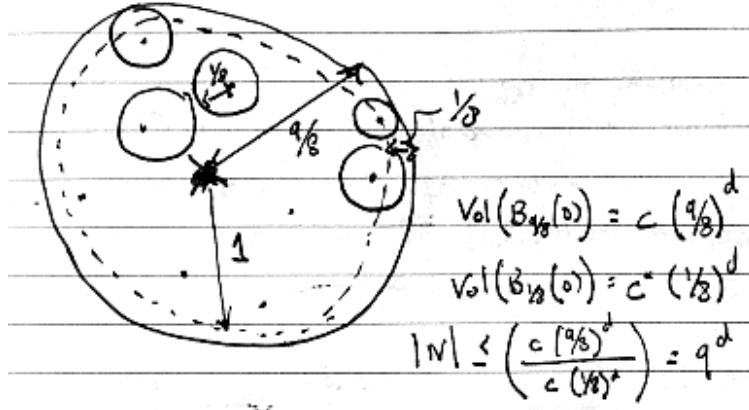 1/8
1/8
9/8
1
Vol(B_{9/8}(0)) = c (9/8)^d
Vol(B_{1/8}(0)) = c (1/8)^d
|N| ≤ (c (9/8)^d / c (1/8)^d) = 9^d